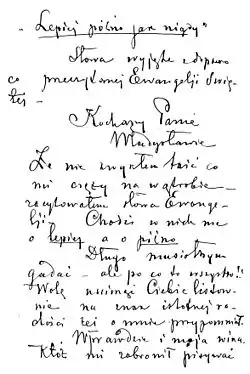 "Lepiej późno jak nigdy"
Słowa wyjęte z dopiero
co przeczytanej Ewangelji Świę-
tej –
Kochany Panie
Władysławie
Że nie zwykłem taić co
mi cięży na wątrobie –
zacytowałem słowa Ewange-
lji. Chodzi w nich nie
o lepiej a o późno.
Długo musiałbym
gadać – ale po co to wszystko!!
Wolę uścisnąć Ciebie listow-
nie na znak istotnej ra-
dości żeś o mnie przypomniał
Wprawdzie i moja wina.
Któż mi zabronił pisywać